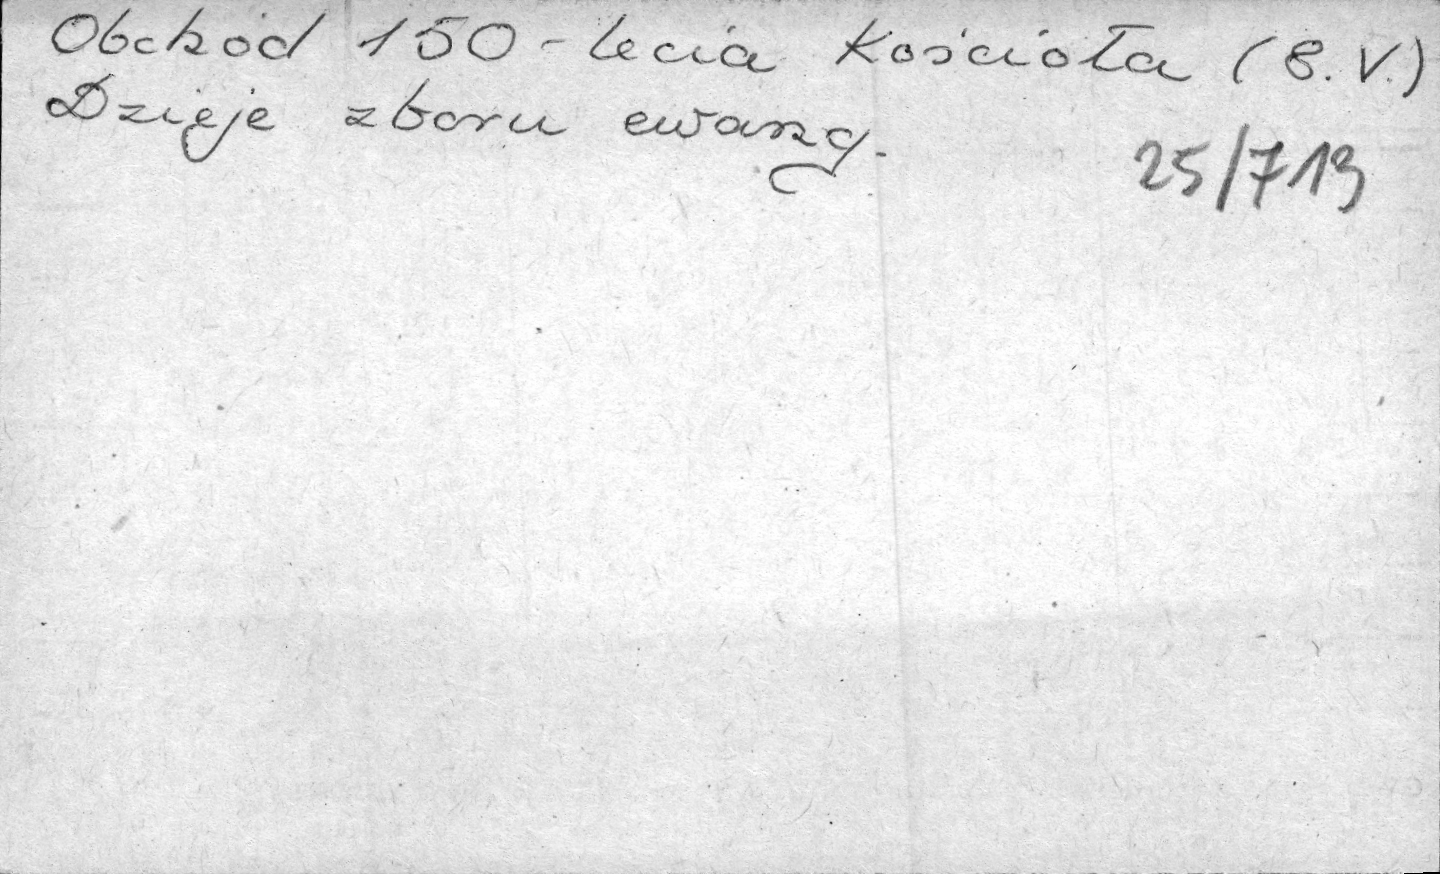 Obchód 150-lecia Kościoła (8. V.)
Dzieje zboru ewang.
25/713